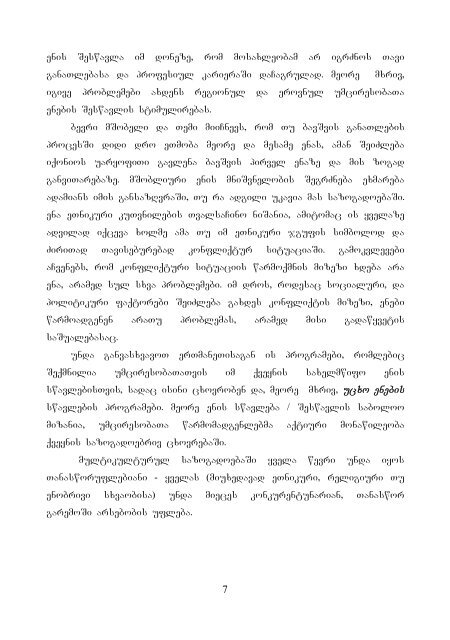 ენის შესწავლა იმ დონეზე, რომ მოსახლეობამ არ იგრძნოს თავი
განათლებასა და პროფესიულ კარიერაში დაჩაგრულად. მეორე მხრივ,
იგივე პრობლემები ახდენს რეგიონულ და ეროვნულ უმცირესობათა
ენების შესწავლის სტიმულირებას.
ბევრი მშობელი და თემი მიიჩნევს, რომ თუ ბავშვის განათლების
პროცესში დიდი დრო ეთმობა მეორე და მესამე ენას, ამან შეიძლება
იქონიოს უარყოფითი გავლენა ბავშვის პირველ ენაზე და მის ზოგად
განვითარებაზე. მშობლიური ენის მნიშვნელობის შეგრძნება ეხმარება
ადამიანს იმის განსაზღვრაში, თუ რა ადგილი უკავია მას საზოგადოებაში.
ენა ეთნიკური კუთვნილების თვალსაჩინო ნიშანია, ამიტომაც ის ყველაზე
ადვილად იქცევა ხოლმე ამა თუ იმ ეთნიკური ჯგუფის სიმბოლოდ და
ძირითად თავისებურებად კონფლიქტურ სიტუაციაში. გამოკვლევები
აჩვენებს, რომ კონფლიქტური სიტუაციის წარმოქმნის მიზეზი ხდება არა
ენა, არამედ სულ სხვა პრობლემები. იმ დროს, როდესაც სოციალური, და
პოლიტიკური ფაქტორები შეიძლება გახდეს კონფლიქტის მიზეზი, ენები
წარმოადგენენ არათუ პრობლემას, არამედ მისი გადაწყვეტის
საშუალებასაც.
უნდა განვასხვავოთ ერთმანეთისაგან ის პროგრამები, რომლებიც
შექმნილია უმცირესობათათვის იმ ქვეყნის სახელმწიფო ენის
სწავლებისთვის, სადაც ისინი ცხოვრობენ და, მეორე მხრივ, უცხო ენების
სწავლების პროგრამები. მეორე ენის სწავლება / შესწავლის საბოლოო
მიზანია, უმცირესობათა წარმომადგენლებმა აქტიური მონაწილეობა
ქვეყნის საზოგადოებრივ ცხოვრებაში.
მულტიკულტურულ საზოგადოებაში ყველა წევრი უნდა იყოს
თანასწორუფლებიანი - ყველას (მიუხედავად ეთნიკური, რელიგიური თუ
ენობრივი სხვაობისა) უნდა მიეცეს კონკურენტუნარიან, თანასწორ
გარემოში არსებობის უფლება.
7